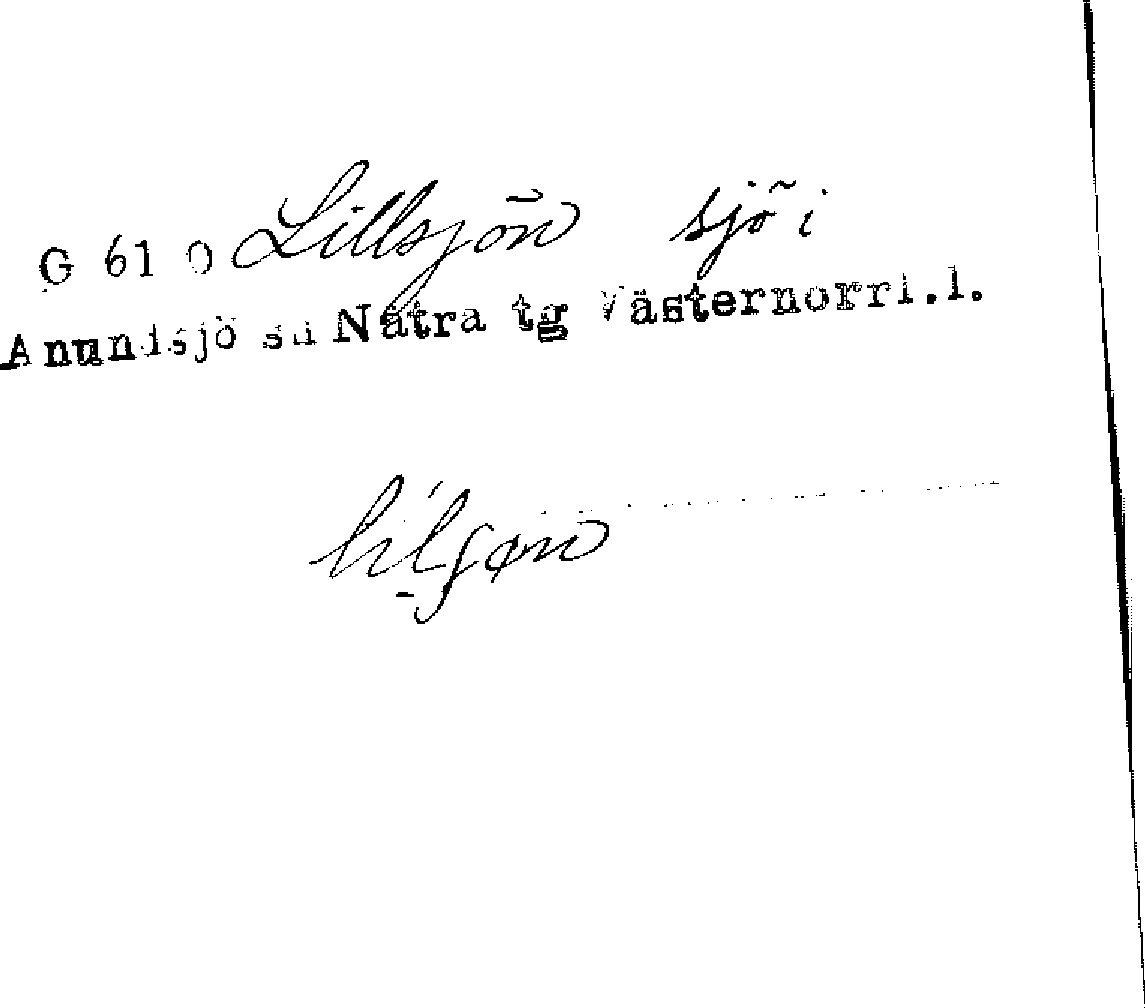 G 61 Ö Lillsjön sjö i
Anundsjö sn Nätra tg Västernorrl.l.